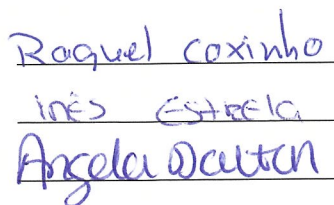 Raquel Coxinho
inês Estrela
Angela Dalten